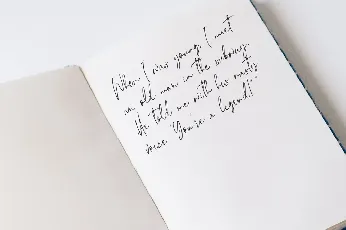 When I was young, I met
an old man in the subway.
He told me with his rusty
voice "You're a legend!"